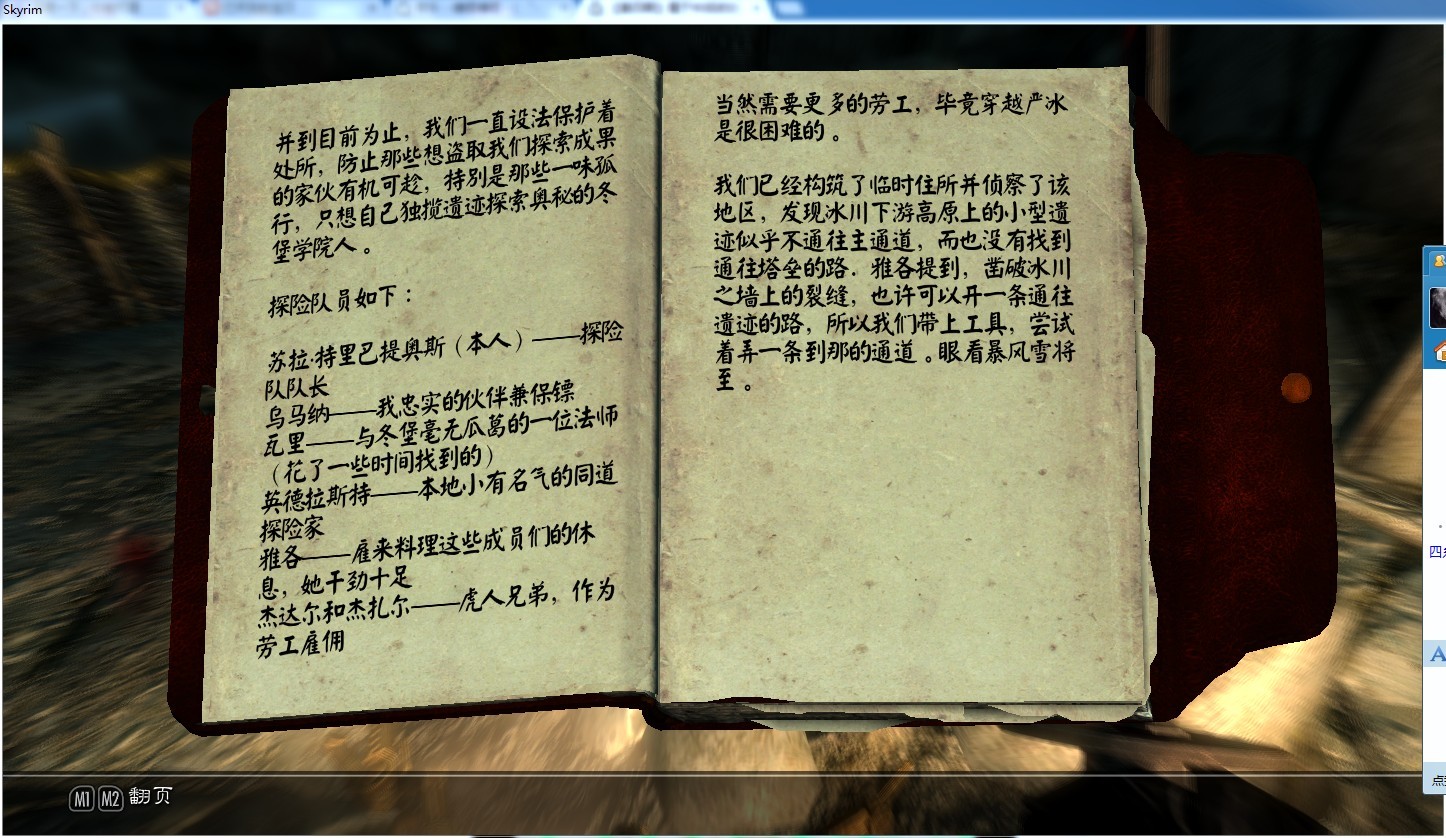 Skyrim
并到目前为止，我们一直设法保护着
处所，防止那些想盗取我们探索成果
的家伙有机可趁，特别是那些一味孤
行，只想自己独揽遗迹探索奥秘的冬
堡学院人。
探险队员如下：
苏拉·特里巴提奥斯（本人）——探险
队队长
乌马纳——我忠实的伙伴兼保镖
瓦里——与冬堡毫无瓜葛的一位法师
（花了一些时间找到的）
英德拉斯特——本地小有名气的同道
探险家
雅各——雇来料理这些成员们的休
息，她干劲十足
杰达尔和杰扎尔——虎人兄弟，作为
劳工雇佣
当然需要更多的劳工，毕竟穿越严冰
是很困难的。
我们已经构筑了临时住所并侦察了该
地区，发现冰川下游高原上的小型遗
迹似乎不通往主通道，而也没有找到
通往塔垒的路．雅各提到，凿破冰川
之墙上的裂缝，也许可以开一条通往
遗迹的路，所以我们带上工具，尝试
着弄一条到那的通道。眼看暴风雪将
至。
M1 M2 翻页
A